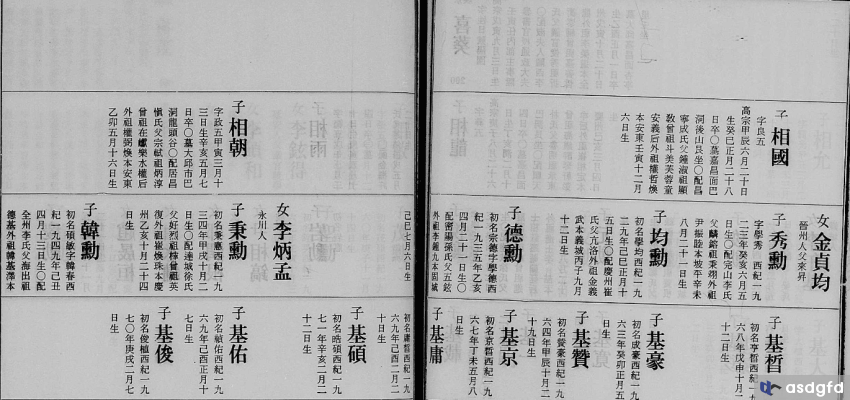 子 相國
字良五
高宗甲辰六月二十日
生癸巳正月二十八
日卒〇墓嘉昌面巴
洞後山艮坐〇配昌
寧成氏父鍾淑祖顯
敎曾祖斗美芙蓉童
安義后外祖權哲煥
本安東壬寅十二月
六日生
女 金貞均
晉州人父來昇
子 秀勳
字學秀 西紀一九
二三年癸亥六月五
日生〇配完山李氏
父麟鎔祖秉翊外祖
尹振睦本坡平辛未
八月二十一日生
子 均勳
初名學均西紀一九
二九年己巳正月十
五日生〇配慶州崔
氏父亢洛外祖金義
武本義城丙子九月
十二日生
子 德勳
初名宗德字學德西
紀一九三五年乙亥
四月二十一日生〇
配密陽孫氏父五鉉
外祖李鍾九本固城
子 基晳
初名亨晳西紀一九
六八年戊申十月二
十二日生
子 基豪
初名成豪西紀一九
六三年癸卯正月五
日生
子 基贊
初名贊豪西紀一九
六四年甲辰十二月
十九日生
子 基京
初名京晳西紀一九
六七年丁未五月八
日生
子 基庸
子 相朝
字政五甲寅三月十
三日生辛亥五月七
日卒〇墓大邱市巴
洞龍頭谷〇配居昌
愼氏父宗軾祖炳淳
曾祖在巘樂水權后
外祖權弼煥本安東
乙卯五月十六日生
己巳七月六日生
女 李炳孟
永川人
子 秉勳
初名秉憲西紀一九
三四年甲戌十月二
日生〇配達城徐氏
父好烈祖樟曾祖英
復外祖崔煥珠本慶
州乙亥十月二十四
日生
子 韓勳
初名碩敏字韓春西
紀一九四九年己丑
四月十三日生〇配
全州李氏父海出祖
德基外祖韓基澤本
初名庸晳西紀一九
六九年己酉二月二
十日生
子 基碩
初名晧碩西紀一九
七一年辛亥二月二
十二日生
子 基佑
初名禎佑西紀一九
六九年己酉正月十
七日生
子 基俊
初名俊植西紀一九
七〇年庚戌二月七
日生
asdgfd